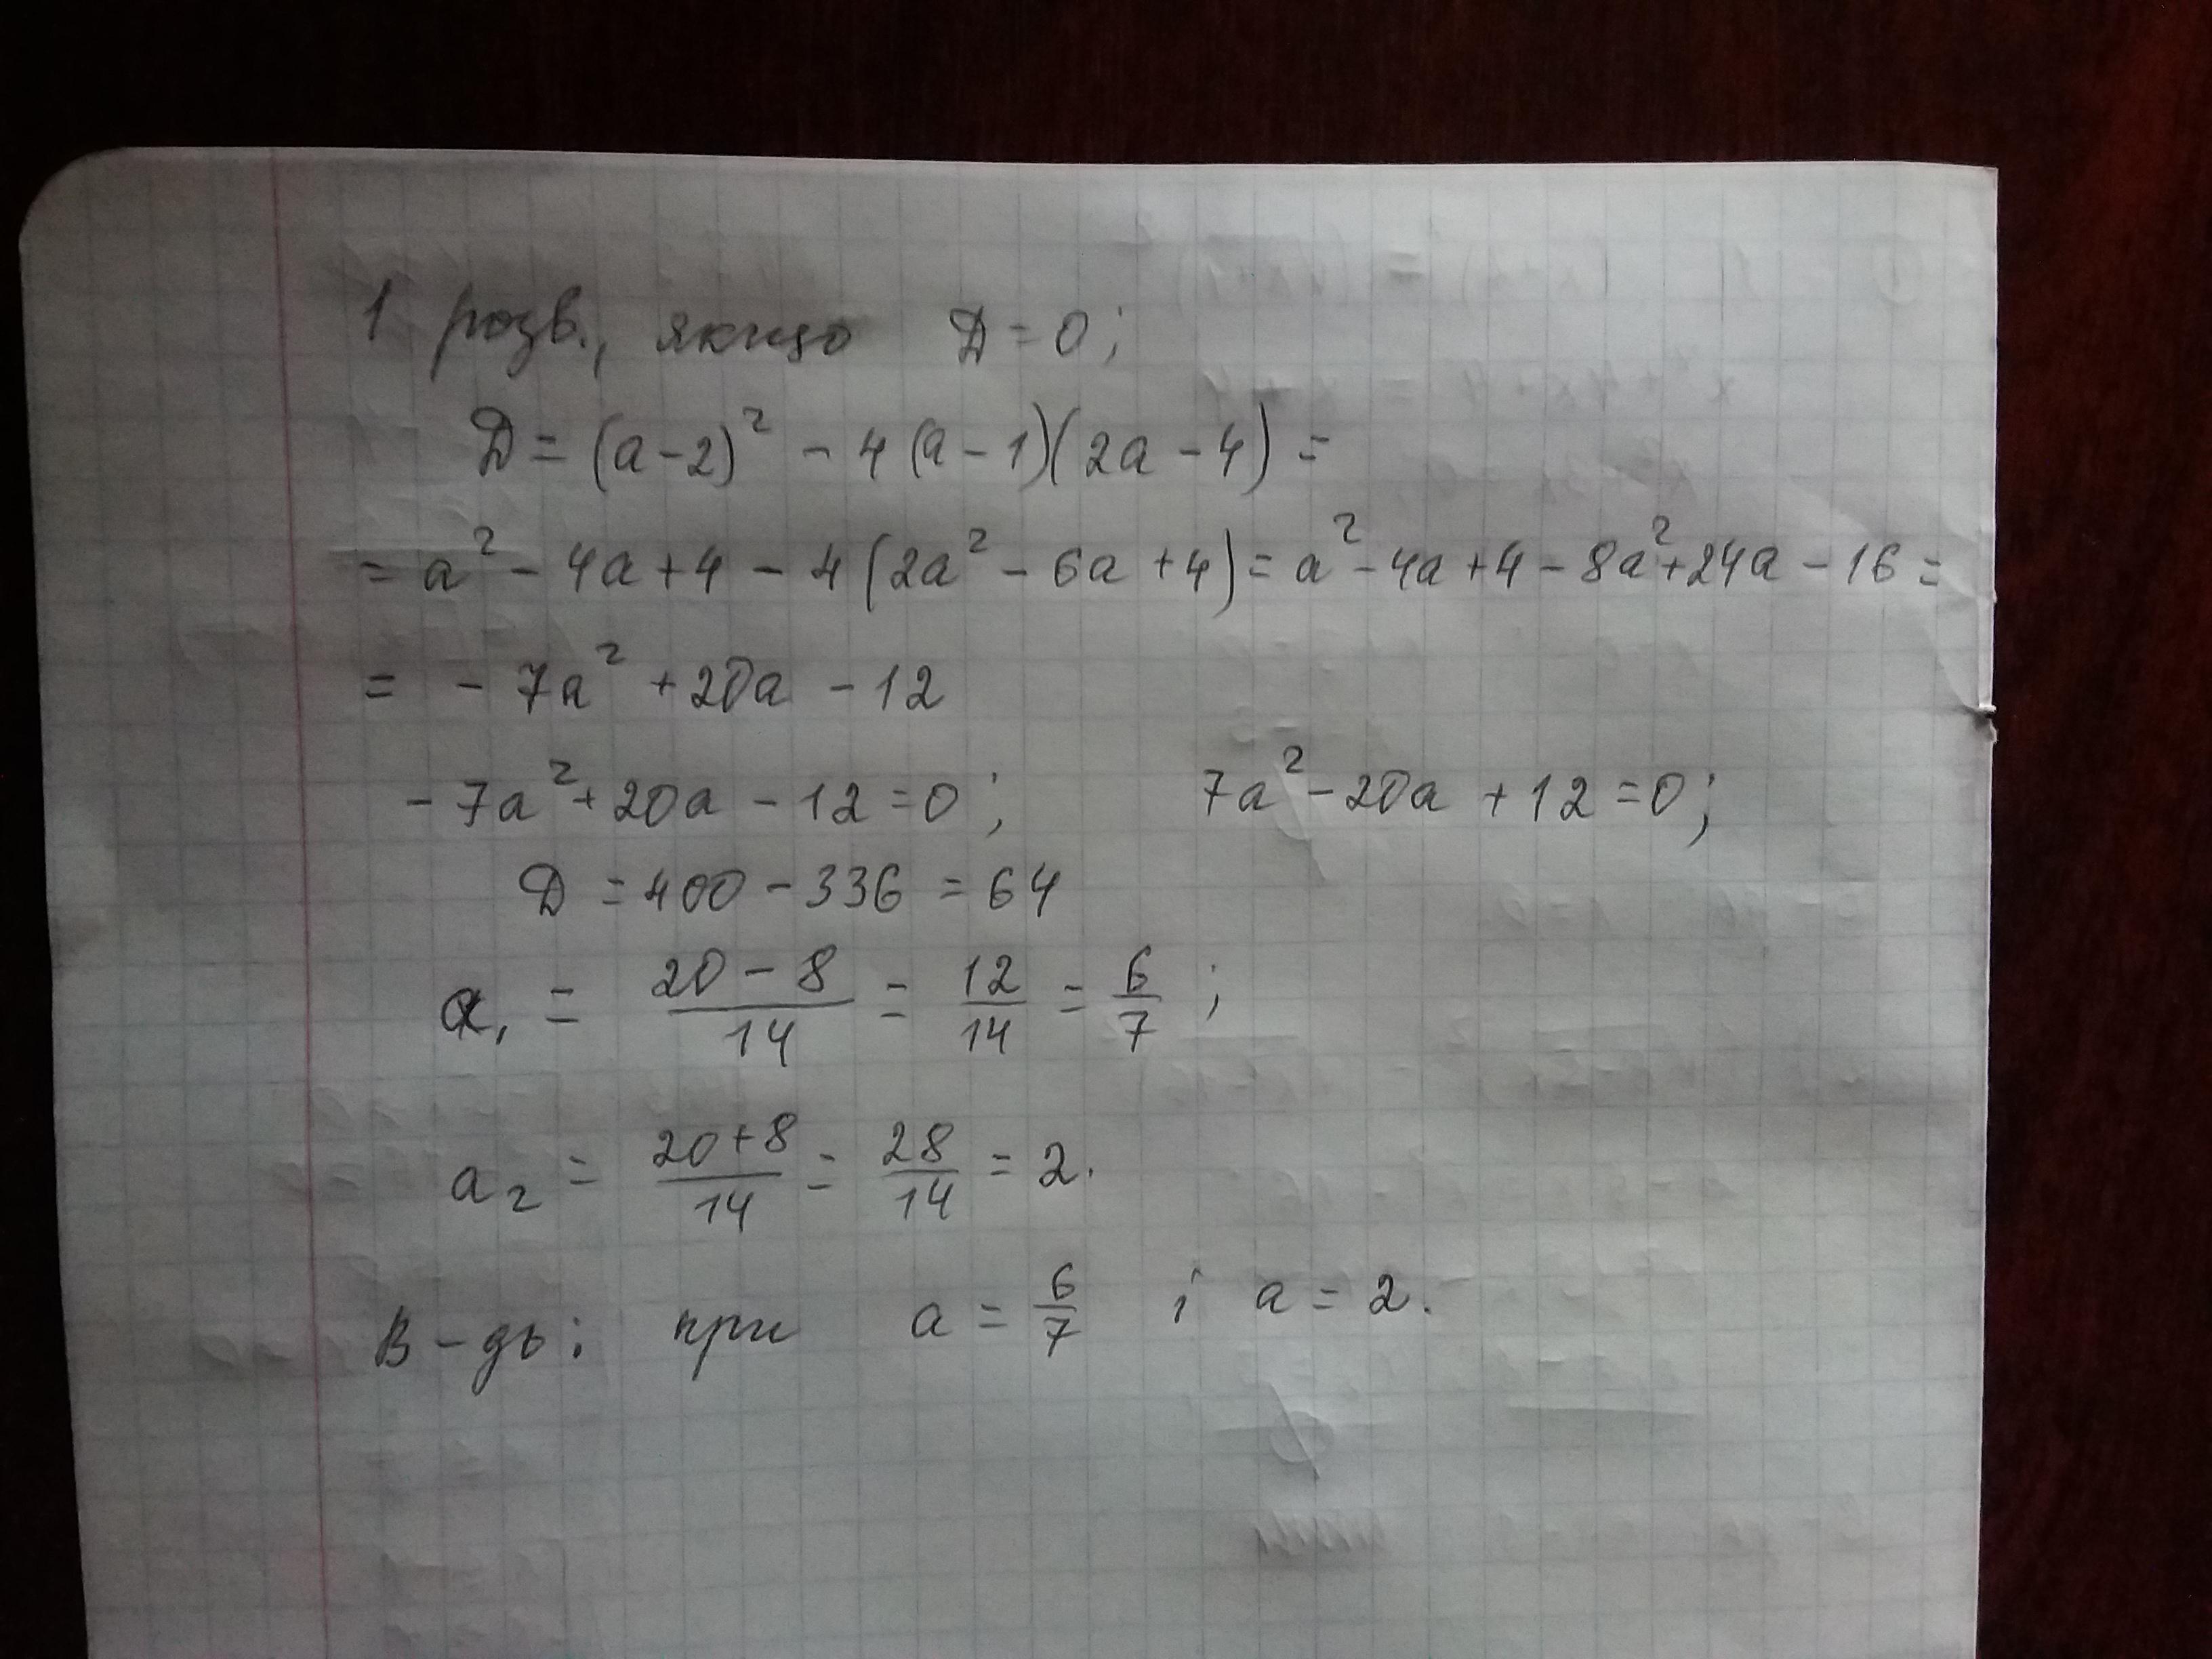 1 розв., якщо D = 0;
D = (a-2)² - 4(a-1)(2a-4) =
= a² - 4a + 4 - 4(2a² - 6a + 4) = a² - 4a + 4 - 8a² + 24a - 16 =
= - 7a² + 20a - 12
- 7a² + 20a - 12 = 0; 7a² - 20a + 12 = 0;
D = 400 - 336 = 64
a₁ = (20 - 8)/14 = 12/14 = 6/7;
a₂ = (20+8)/14 = 28/14 = 2.
В-дь: при a = 6/7 і a = 2.